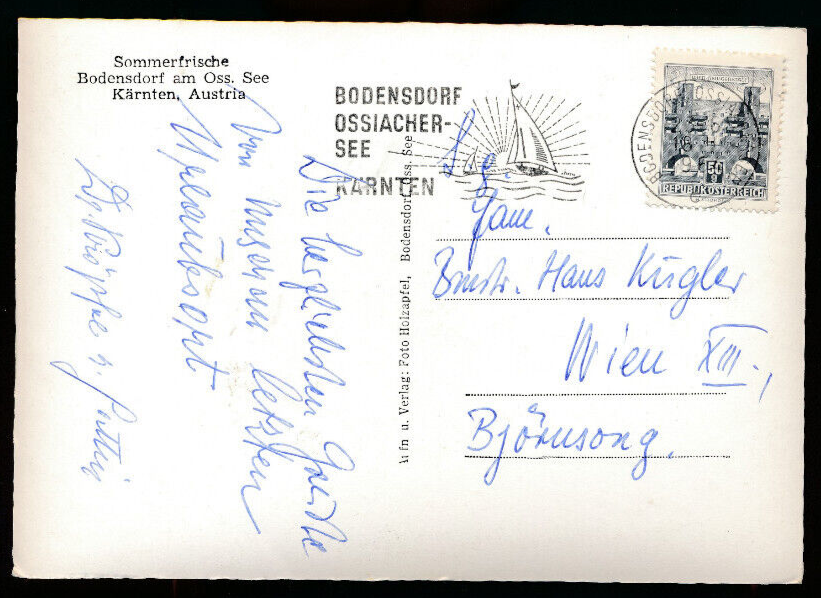 Sommerfrische
Bodensdorf am Oss. See
Kärnten, Austria
BODENSDORF
OSSIACHER-
SEE
KÄRNTEN
50
REPUBLIK ÖSTERREICH
Die herzlichsten Grüße
von unserem letzten
Urlaubsort
u. Gattin
Aufn u. Verlag: Foto Holzapfel, Bodensdorf Oss. See
Fam.
Bmstr. Hans Kugler
Wien XIII.,
Björnsong.